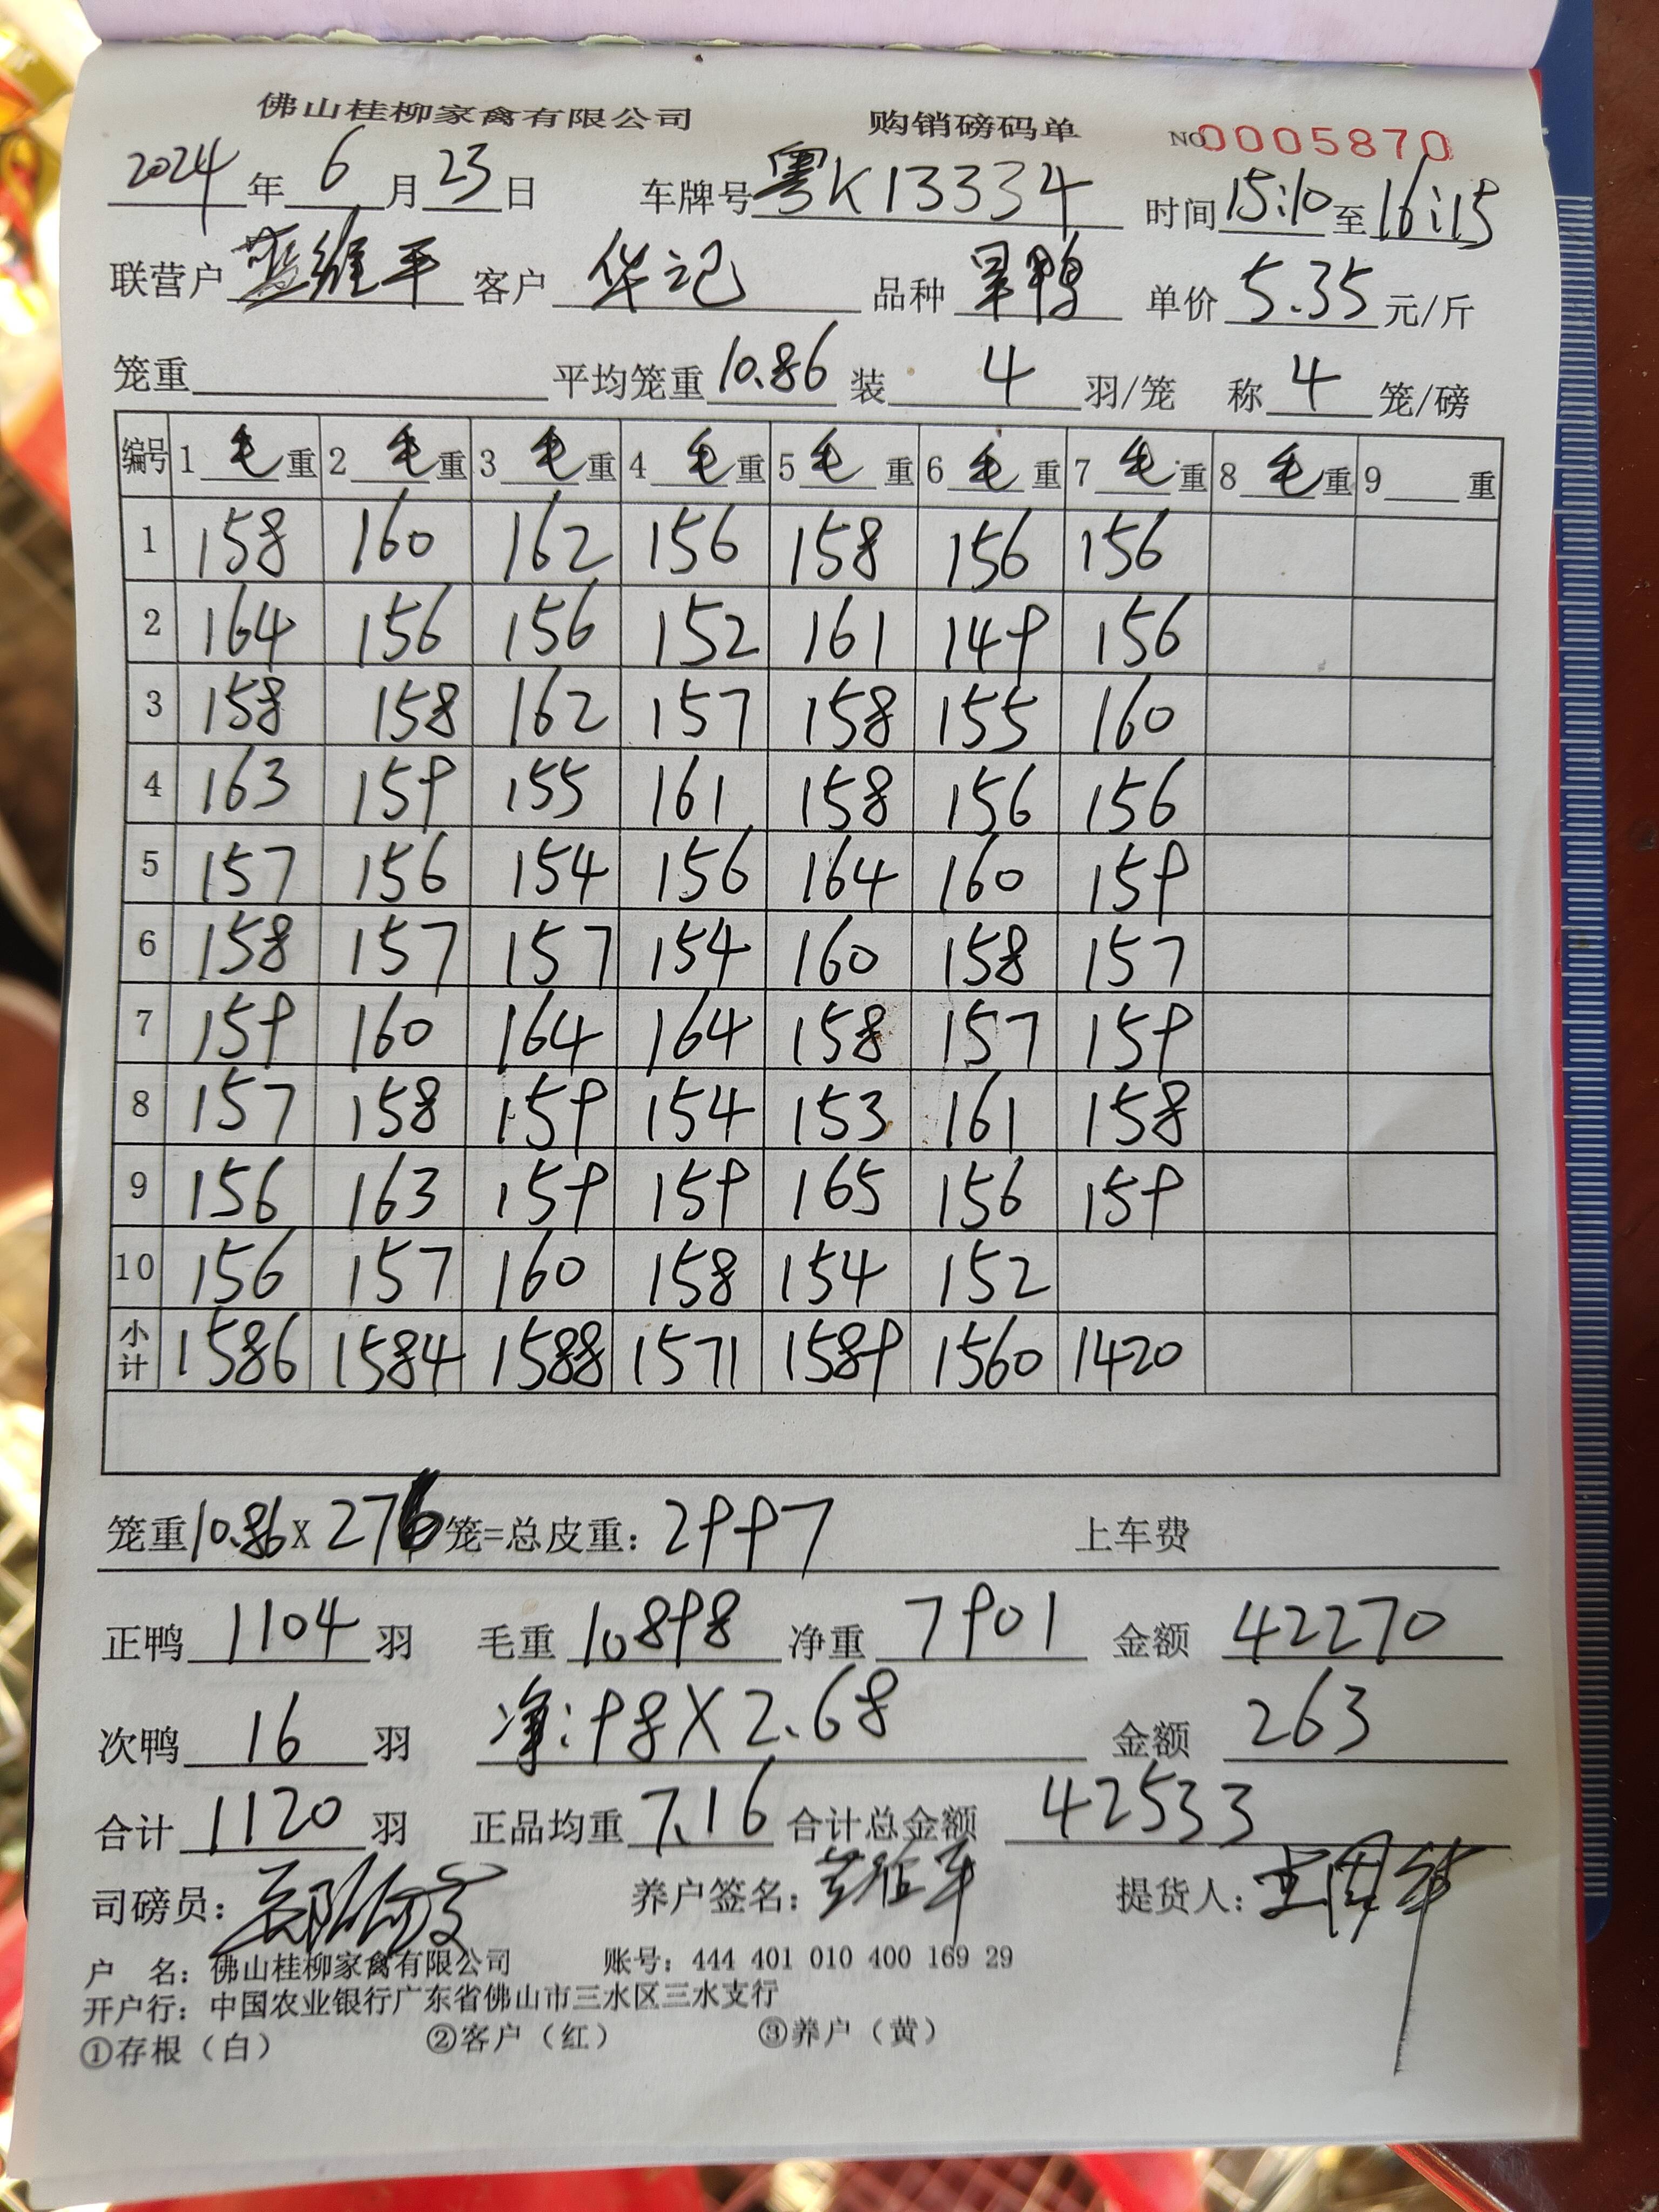 佛山桂柳家禽有限公司 购销磅码单 NO 0005870
2024年6月23日 车牌号 粤K13334 时间 15:10 至 16:15
联营户 蓝维平 客户 华记 品种 旱鸭 单价 5.35 元/斤
笼重 平均笼重 10.86 装 4 羽/笼 称 4 笼/磅
编号 1 毛 重 2 毛 重 3 毛 重 4 毛 重 5 毛 重 6 毛 重 7 毛 重 8 毛 重 9 重
1 158 160 162 156 158 156 156
2 164 156 156 152 161 149 156
3 158 158 162 157 158 155 160
4 163 159 155 161 158 156 156
5 157 156 154 156 164 160 159
6 158 157 157 154 160 158 157
7 159 160 164 164 158 157 159
8 157 158 159 154 153 161 158
9 156 163 159 159 165 156 159
10 156 157 160 158 154 152
小计 1586 1584 1588 1571 1589 1560 1420
笼重 10.86 X 276 笼=总皮重: 2997 上车费
正鸭 1104 羽 毛重 10898 净重 7901 金额 42270
次鸭 16 羽 净:98X2.68 金额 263
合计 1120 羽 正品均重 7.16 合计总金额 42533
司磅员: 养户签名: 蓝维平 提货人:
户 名: 佛山桂柳家禽有限公司 账号: 444 401 010 400 169 29
开户行: 中国农业银行广东省佛山市三水区三水支行
①存根（白） ②客户（红） ③养户（黄）